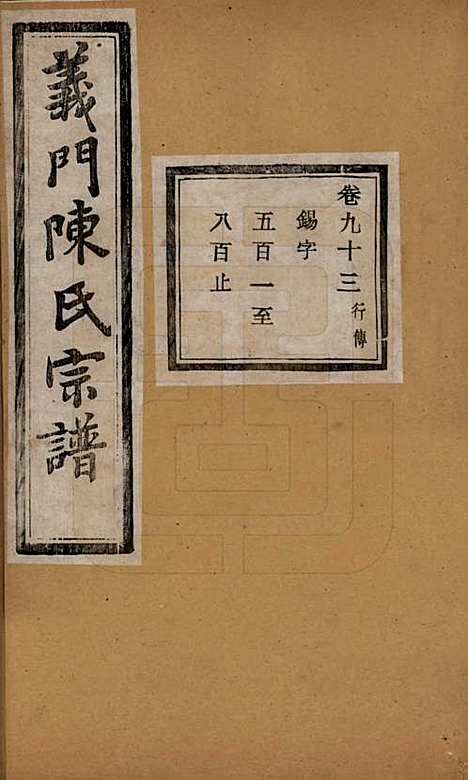 義門陳氏宗譜
卷九十三行傳
錫字
五百一至
八百止